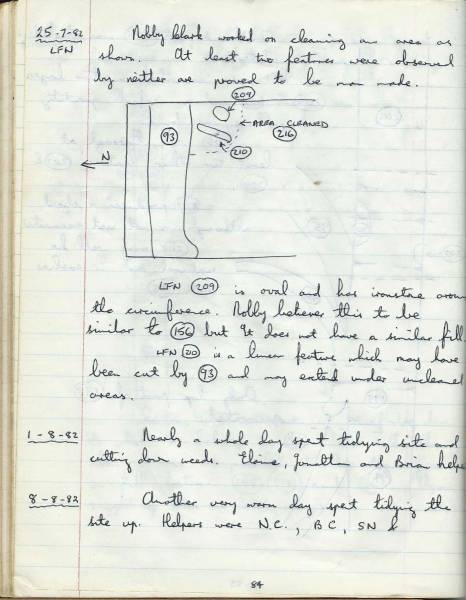 25-7-82 Nobby Clark worked on cleaning an area as
LFN shown. At least two features were observed
by neither are proved to be man made.
209
AREA CLEANED
93
216
N
210
LFN 209 is oval and has ironstone aroun
the circumference. Nobby believes this to be
similar to 156 but it does not have a similar fill.
LFN 210 is a linear feature which may have
been cut by 93 and may extend under uncleaned
areas.
1-8-82 Nearly a whole day spent tidying site and
cutting down weeds. Elaine, Jonathan and Brian helpe
8-8-82 Another very warm day spent tidying the
site up. Helpers were N.C., BC, SN &
84